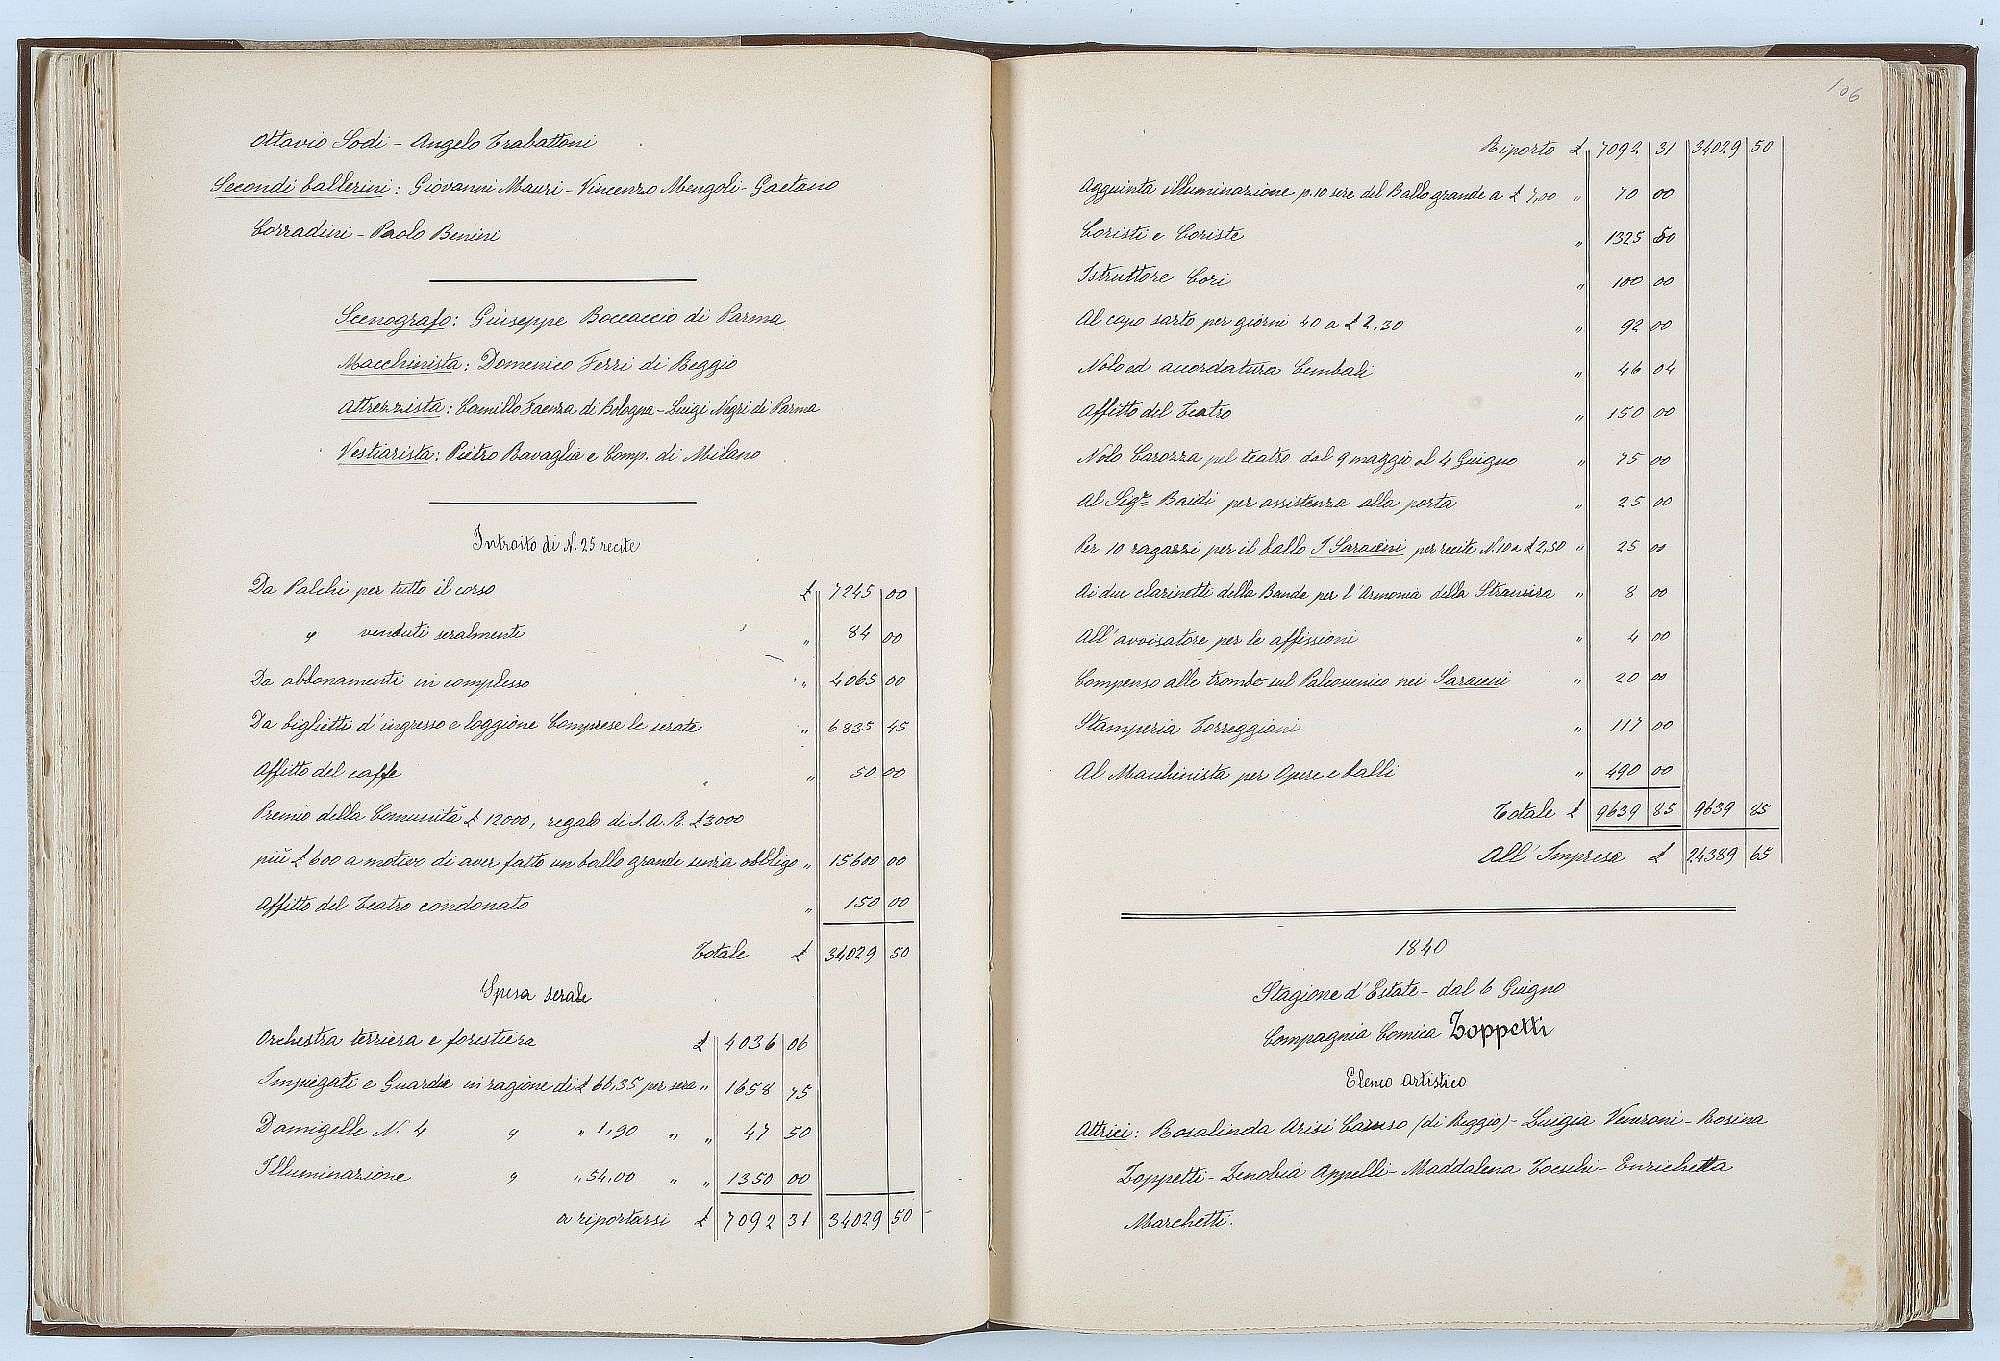 Ottavio Sodi - Angelo Trabattoni
Secondi ballerini: Giovanni Mauri - Vincenzo Mengoli - Gaetano
Corradini - Paolo Benini
Scenografo: Giuseppe Boccaccio di Parma
Macchinista: Domenico Ferri di Reggio
Attrezzista: Camillo Faenza di Bologna - Luigi Negri di Parma
Vestiarista: Pietro Ravaglia e Comp. di Milano
Introito di N. 25 recite
Da Palchi per tutto il corso £ 7245 00
" venduti seralmente " 84 00
Da abbonamenti in complesso " 4065 00
Da biglietti d'ingresso e loggione Comprese le serate " 6835 45
Affitto del caffe " 50 00
Premio della Comunità £ 12000, regalo di S. A. R. £ 3000
più £ 600 a motivo di aver fatto un ballo grande senza obbligo " 15600 00
Affitto del Teatro condonato " 150 00
Totale £ 34029 50
Spesa serale
Orchestra terriera e forestiera £ 4036 06
Impiegati e Guardie in ragione di £ 66,35 per sera " 1658 75
Damigelle N. 4 " " 1,90 " " 47 50
Illuminazione " " 54,00 " " 1350 00
a riportarsi £ 7092 31 34029 50
106
Riporto £ 7092 31 34029 50
Aggiunta illuminazione p. 10 sere del Ballo grande a £ 7,00 " 70 00
Coristi e Coriste " 1325 50
Istruttore Cori " 100 00
Al capo sarto per giorni 40 a £ 2,30 " 92 00
Nolo ed accordatura Cembali " 46 04
Affitto del Teatro " 150 00
Nolo Carozza pel teatro dal 9 maggio al 4 Giugno " 75 00
Al Sigr. Baldi per assistenza alla porta " 25 00
Per 10 ragazzi per il ballo I Saraceni per recite N. 10 a £ 2,50 " 25 00
Ai due clarinetti della Banda per l'Armonia della Straniera " 8 00
All'avvisatore per le affissioni " 4 00
Compenso alle trombe sul Palcoscenico nei Saraceni " 20 00
Stamperia Torreggiani " 117 00
Al Macchinista per Opere e balli " 490 00
Totale £ 9639 85 9639 85
All'Impresa £ 24389 65
1840
Stagione d'Estate - dal 6 Giugno
Compagnia Comica Zoppetti
Elenco Artistico
Attrici: Rosalinda Arisi Caruso (di Reggio) - Luigia Venizoni - Rosina
Zoppetti - Zenobia Appelli - Maddalena Toeschi - Enrichetta
Marchetti.